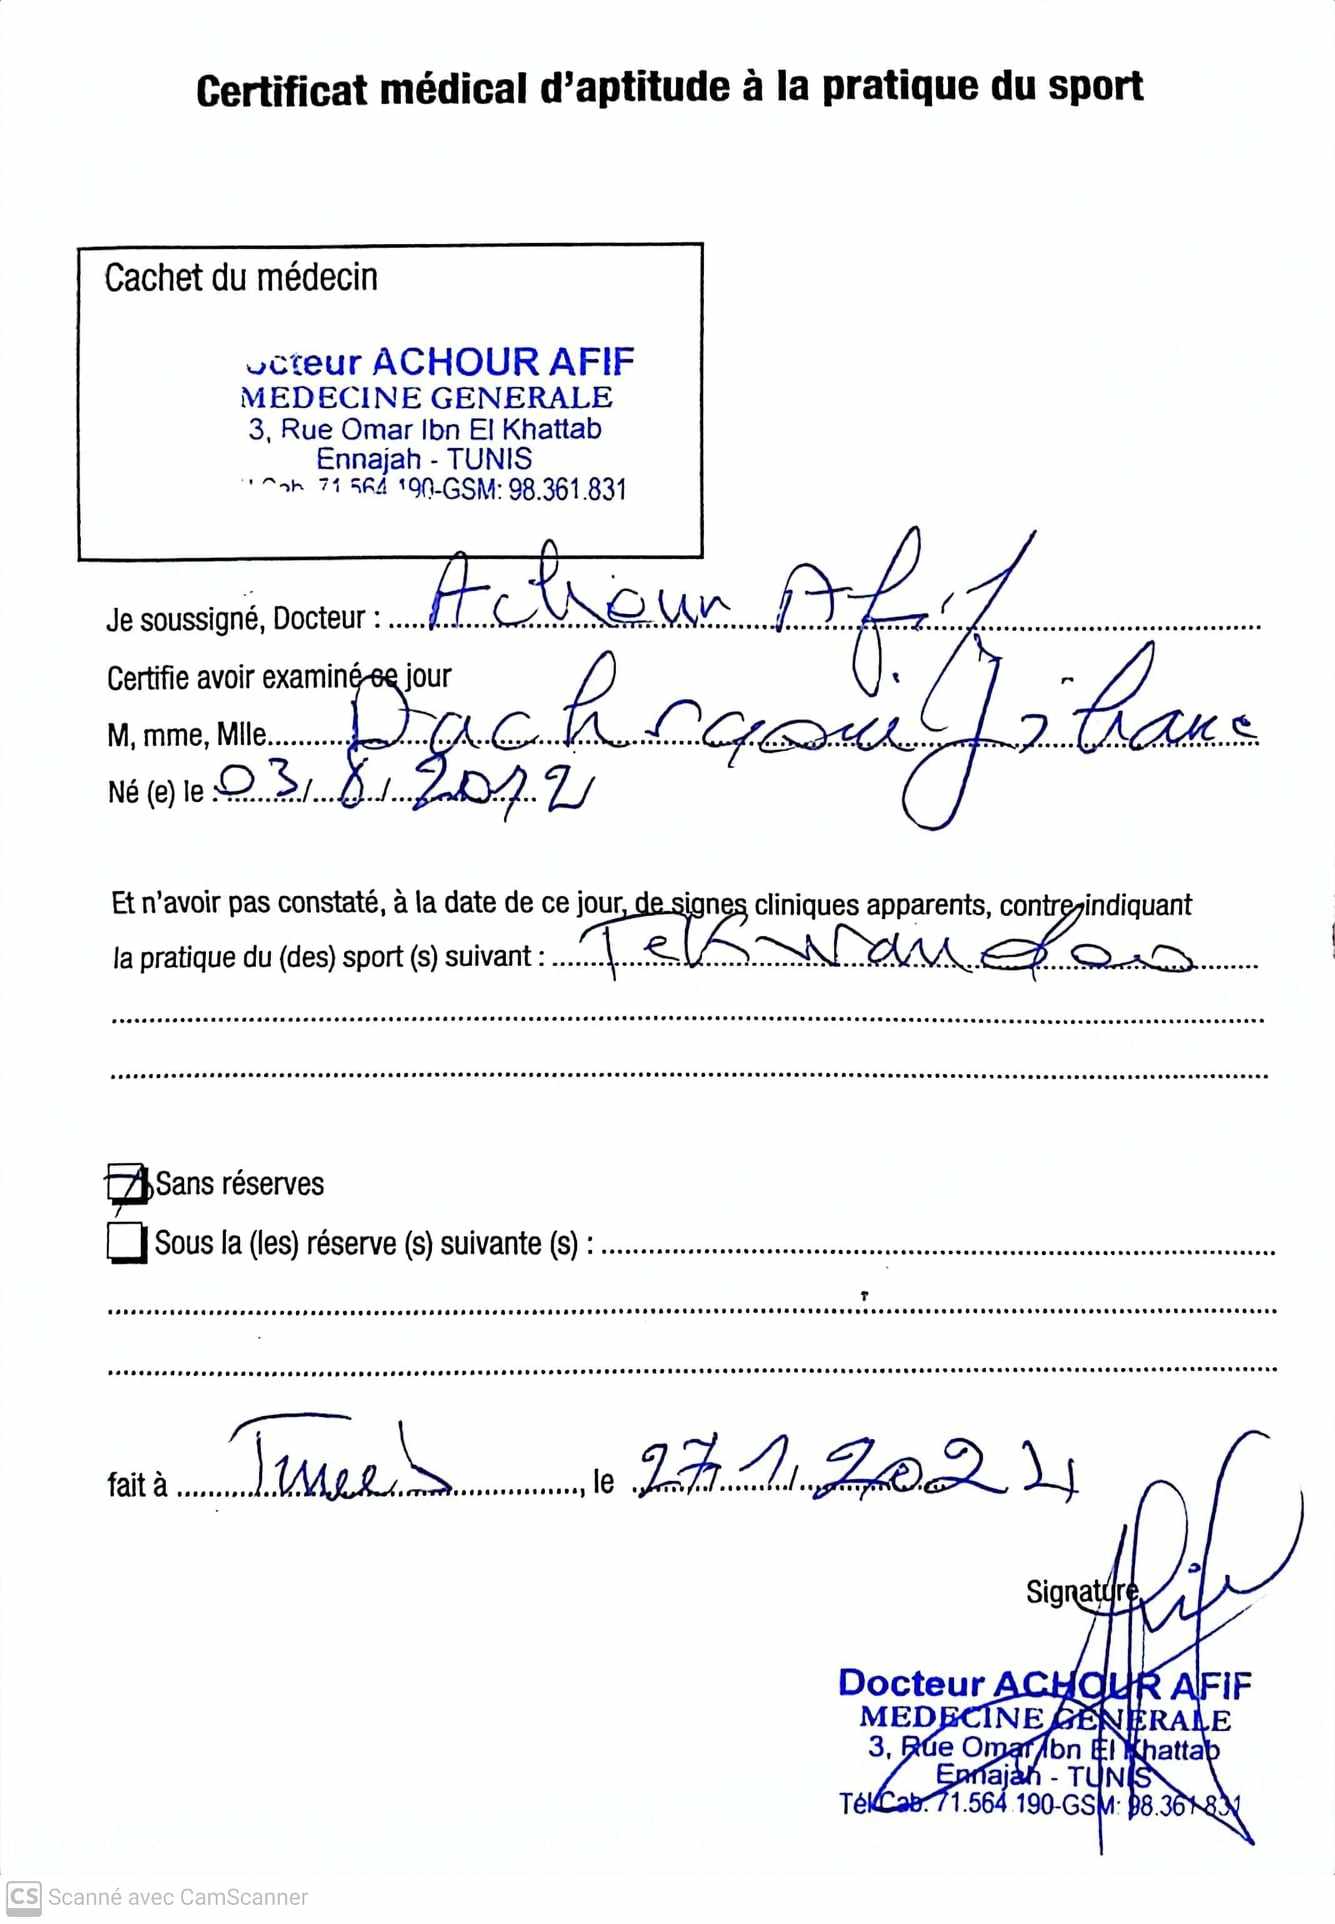 Certificat médical d'aptitude à la pratique du sport
Cachet du médecin
octeur ACHOUR AFIF
MEDECINE GENERALE
3, Rue Omar Ibn El Khattab
Ennajah - TUNIS
Cab 71 564 190-GSM: 98.361.831
Je soussigné, Docteur : Achour Afif
Certifie avoir examiné ce jour
M, mme, Mlle Dachraoui Jihane
Né (e) le : 03/8/2012
Et n'avoir pas constaté, à la date de ce jour, de signes cliniques apparents, contre-indiquant
la pratique du (des) sport (s) suivant : Tekwandoo
Sans réserves
Sous la (les) réserve (s) suivante (s) :
fait à , le 27/1/2024
Signature
Docteur ACHOUR AFIF
MEDECINE GENERALE
3, Rue Omar Ibn El Khattab
Ennajah - TUNIS
Tél Cab. 71.564 190-GSM: 98.361 831
CS Scanné avec CamScanner